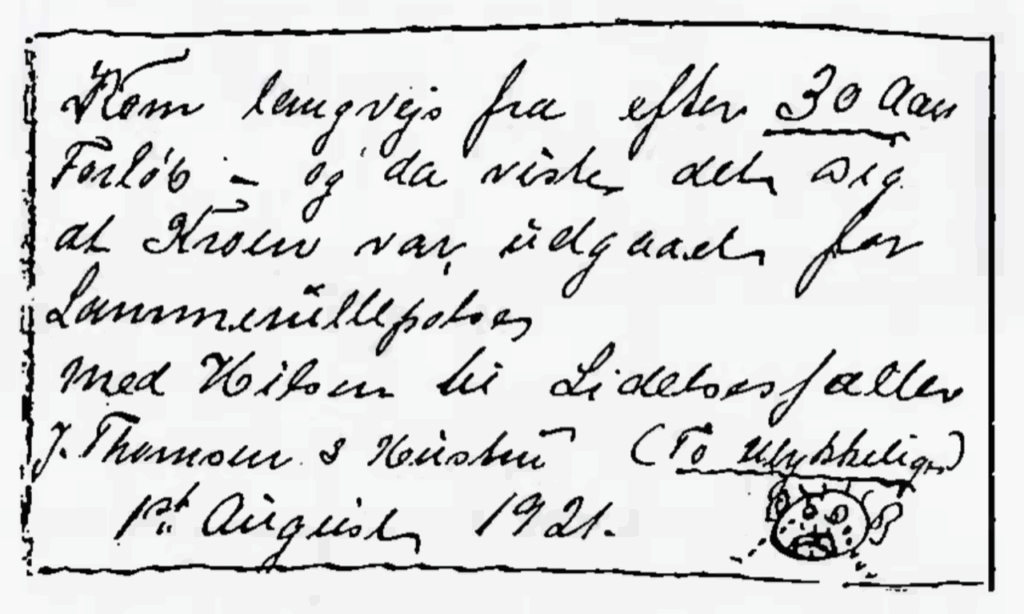 Kom langvejs fra efter 30 Aars
Forløb - og da viste det sig
at Kroen var udgaaet for
Lammerullepølse,
Med Hilsen til Lidelsesfæller
J. Thomsen & Hustru (To Ulykkelige)
1st August 1921.